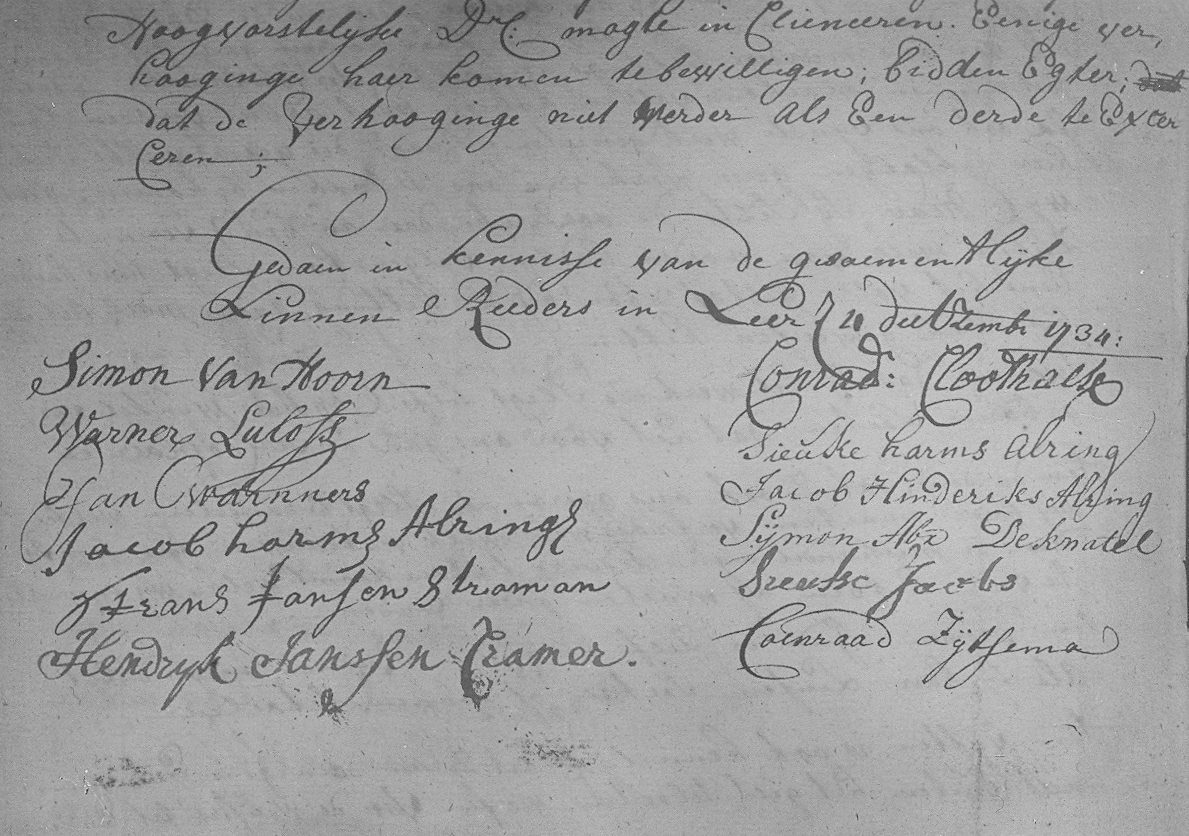 Hoogvorstelyke Drl: mogte in Clieneeren. Eenige ver,
hooginge haer komen te bewilligen; bidden Egter;
dat de Verhooginge niet Werder als Een derde te Excer
Ceren;
Gedaen in kennisse van de gesaementlyke
Linnen Reeders in Leer 20 december 1734:
Simon Van Hoorn
Warner Lulofs
Jan Warnners
Jacob harms Abrings
Frans Jansen Straman
Hendryk Janssen Cramer.
Conrad: Cloothacke
Sieuke harms Alring
Jacob Hinderiks Alring
Sÿmon Abr Deknatel
Sieuke Jacobs
Coenraad Zÿtsema